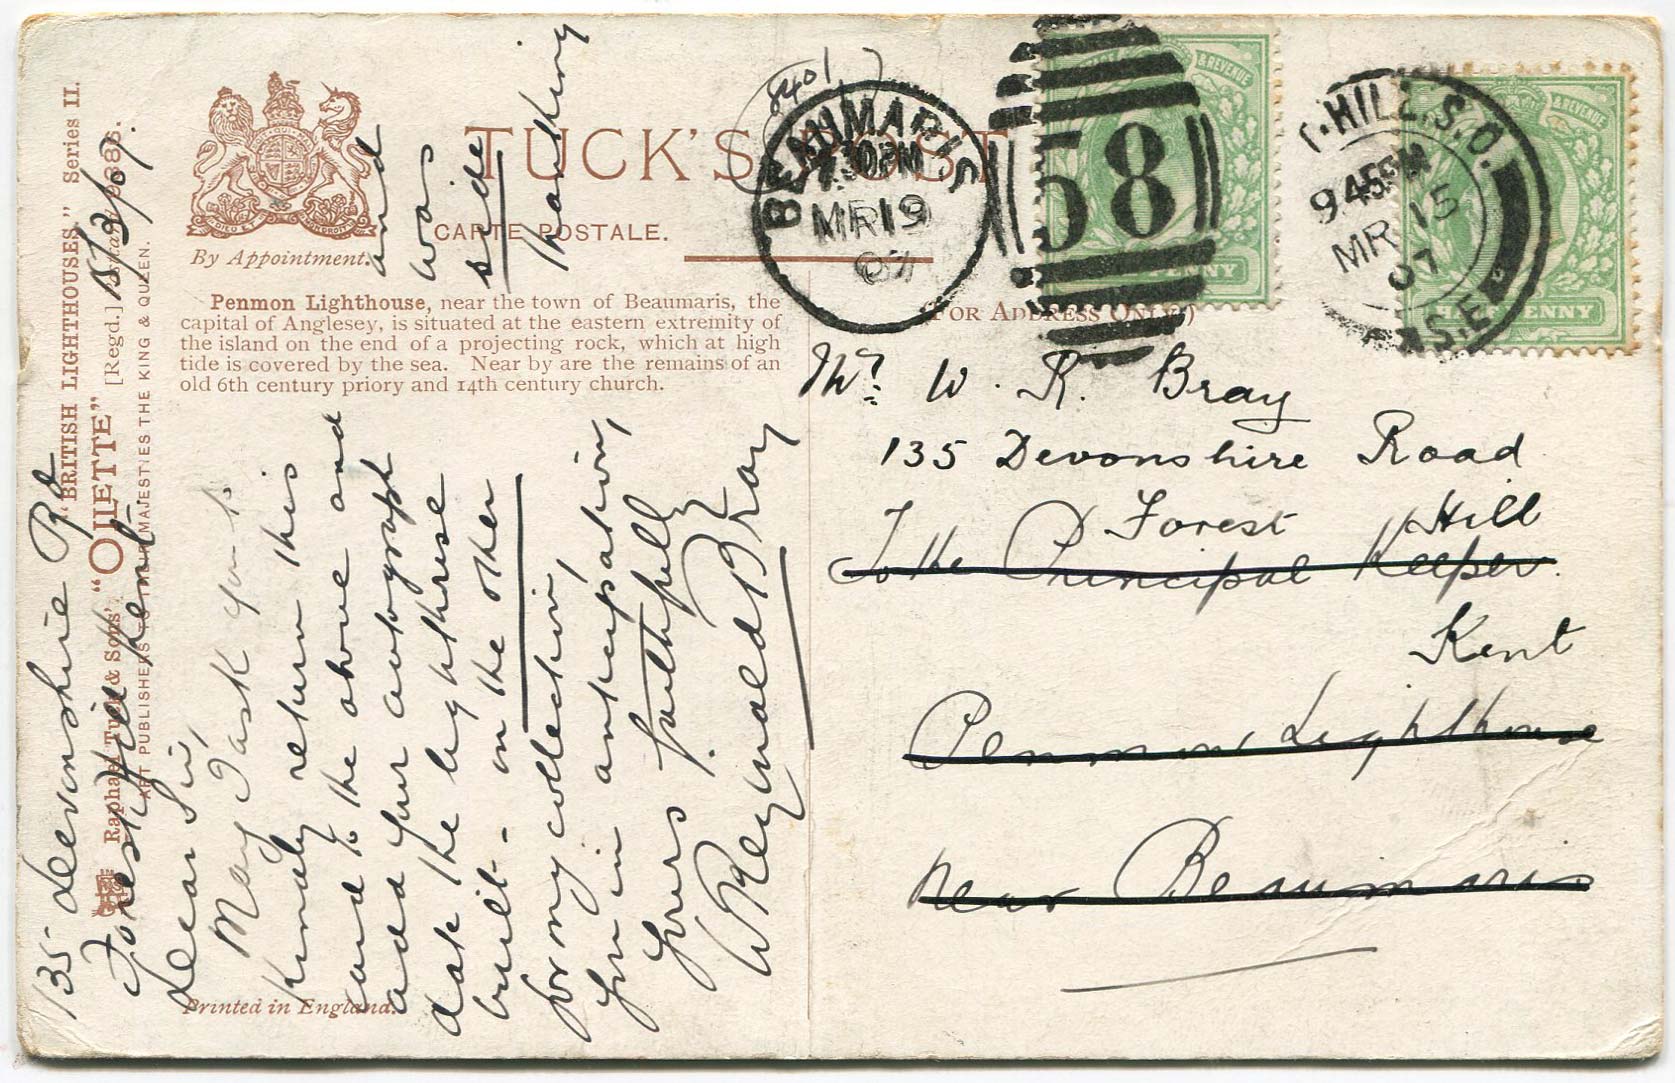 TUCK'S POST
CARTE POSTALE.
By Appointment.
(FOR ADDRESS ONLY.)
Penmon Lighthouse, near the town of Beaumaris, the
capital of Anglesey, is situated at the eastern extremity of
the island on the end of a projecting rock, which at high
tide is covered by the sea. Near by are the remains of an
old 6th century priory and 14th century church.
"BRITISH LIGHTHOUSES." Series II.
Raphael Tuck & Sons' "OILETTE" [Regd.]
ART PUBLISHERS TO THEIR MAJESTIES THE KING & QUEEN.
Printed in England.
135 Devonshire Rd
Forest Hill Kent 15/3/07.
Dear Sir,
May I ask you to
kindly return this
card to the above and
add your autograph and
date the lighthouse was
built - on the other side
for my collection,
thanking
you in anticipation,
Yours faithfully
W Reynald Bray
Mr. W. R. Bray
135 Devonshire Road
Forest Hill
Kent
To the Principal Keeper.
Penmon Lighthouse
Near Beaumaris
8401
BEAUMARIS
7.30PM
MR 19
07
58
& REVENUE
PENNY
T. HILL. S.O.
9 45PM
MR 15
07
S.E
& REVENUE
HALF PENNY